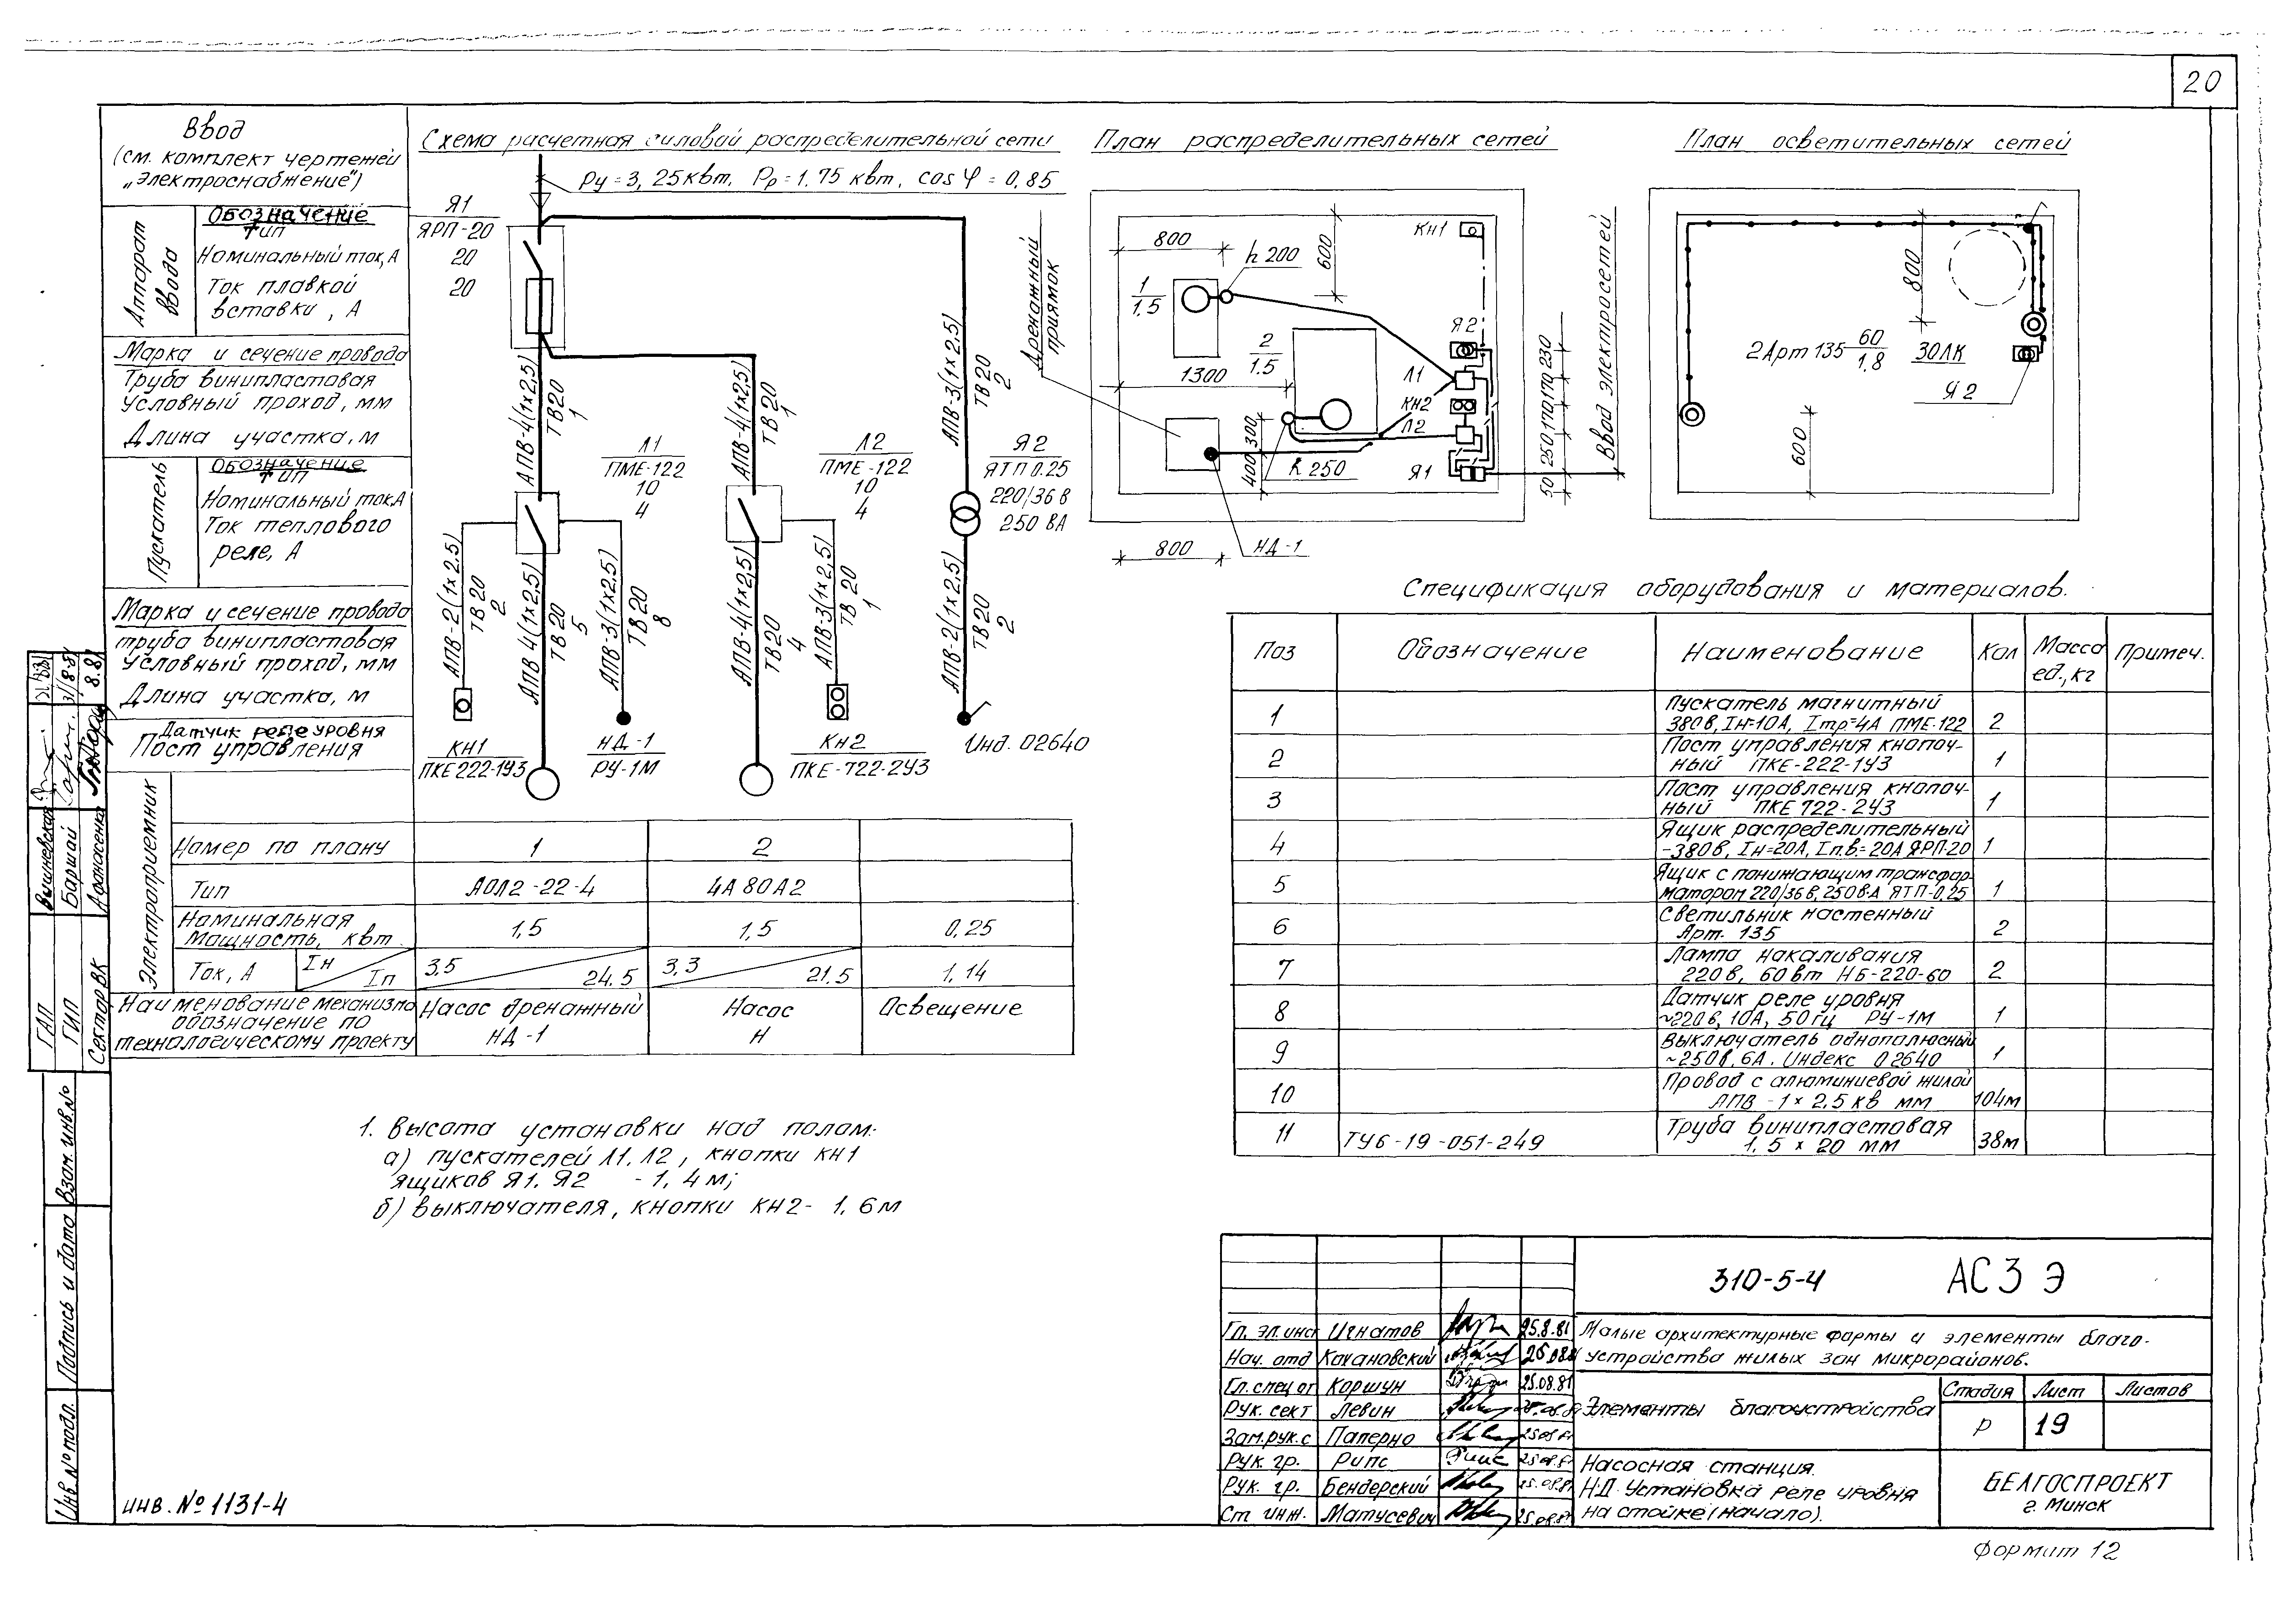 20
Ввод
(см. комплект чертежей
„Электроснабжение")
Аппарат
ввода
Обозначение
Тип
Номинальный ток, А
Ток плавкой
вставки, А
Марка и сечение провода
Труба винипластовая
Условный проход, мм
Длина участка, м
Пускатель
Обозначение
Тип
Номинальный ток, А
Ток теплового
реле, А
Марка и сечение провода
труба винипластовая
Условный проход, мм
Длина участка, м
Датчик реле уровня
Пост управления
Схема расчетная силовой распределительной сети
Ру=3,25квт, Рр=1.75 квт, cos φ = 0,85
Я1
ЯРП-20
20
20
АПВ-4(1х2,5)
ТВ20
1
АПВ-4(1х2,5)
ТВ 20
1
АПВ-3(1х2,5)
ТВ 20
2
Л1
ПМЕ-122
10
4
Л2
ПМЕ-122
10
4
Я2
ЯТП 0.25
220/36 в
250 ВА
АПВ-2(1х2.5)
ТВ 20
2
АПВ 4(1х2,5)
ТВ 20
5
АПВ-3(1х2,5)
ТВ 20
8
АПВ-4(1х2,5)
ТВ20
4
АПВ-3(1х2,5)
ТВ 20
1
АПВ-2(1х2.5)
ТВ20
2
КН1
ПКЕ 222-1У3
НД-1
РУ-1М
КН2
ПКЕ-722-2У3
Инд. 02640
Электроприемник
Номер по плану 1 2
Тип АОЛ2-22-4 4А80А2
Номинальная
мощность, квт 1,5 1,5 0,25
Ток, А Iн Iп 3,5 24,5 3,3 21.5 1,14
Наименование механизма
обозначение по
технологическому проекту
Насос дренажный
НД-1
Насос
Н
Освещение
План распределительных сетей
Дренажный
приямок
800
h 200
600
КН1
1
1,5
2
1.5
1300
Я2
Л1
КН2
Л2
Я1
400 300
h 250
50 250 170 170 230
Ввод электросетей
800
НД-1
План осветительных сетей
800
2Арт 135 60
1.8
ЗОЛК
Я2
600
Спецификация оборудования и материалов.
Поз Обозначение Наименование Кол Масса
ед., кг Примеч.
1 Пускатель магнитный
380в, Iн=10А, Iтр=4А ПМЕ-122 2
2 Пост управления кнопоч-
ный ПКЕ-222-1У3 1
3 Пост управления кнопоч-
ный ПКЕ 722-2У3 1
4 Ящик распределительный
~380в, Iн=20А, Iп.в.=20А ЯРП-20 1
5 Ящик с понижающим трансфор-
матором 220/36в, 250в·А ЯТП-0,25 1
6 Светильник настенный
Арт. 135 2
7 Лампа накаливания
220в, 60вт НБ-220-60 2
8 Датчик реле уровня
~220в, 10А, 50гц РУ-1М 1
9 Выключатель однополюсный
~250в, 6А. Индекс 02640 1
10 Провод с алюминиевой жилой
АПВ-1×2,5 кв мм 104м
11 ТУ6-19-051-249 Труба винипластовая
1,5 х 20 мм 38м
1. Высота установки над полом:
а) пускателей Л1, Л2, кнопки КН1
ящиков Я1, Я2 - 1,4м;
б) выключателя, кнопки КН2- 1,6м
ГАП Вышневская
ГИП Баршай
Сектор ВК Афанасенко
Взам. инв. №
Подпись и дата
Инв. № подл.
инв. № 1131-4
310-5-4 АС3 Э
Гл. эл. инст Игнатов 25.8.81
Нач. отд Качановский 25.08.81
Гл. спец от Коршун 25.08.81
Рук. сект Левин
Зам. рук. с Паперно
Рук. гр. Рипс
Рук. гр. Бендерский
Ст инж. Матусевич
Малые архитектурные формы и элементы благо-
устройства жилых зон микрорайонов.
Элементы благоустройства
Стадия Лист Листов
Р 19
Насосная станция.
НД. Установка реле уровня
на стойке (начало).
БЕЛГОСПРОЕКТ
г. Минск
Формат 12